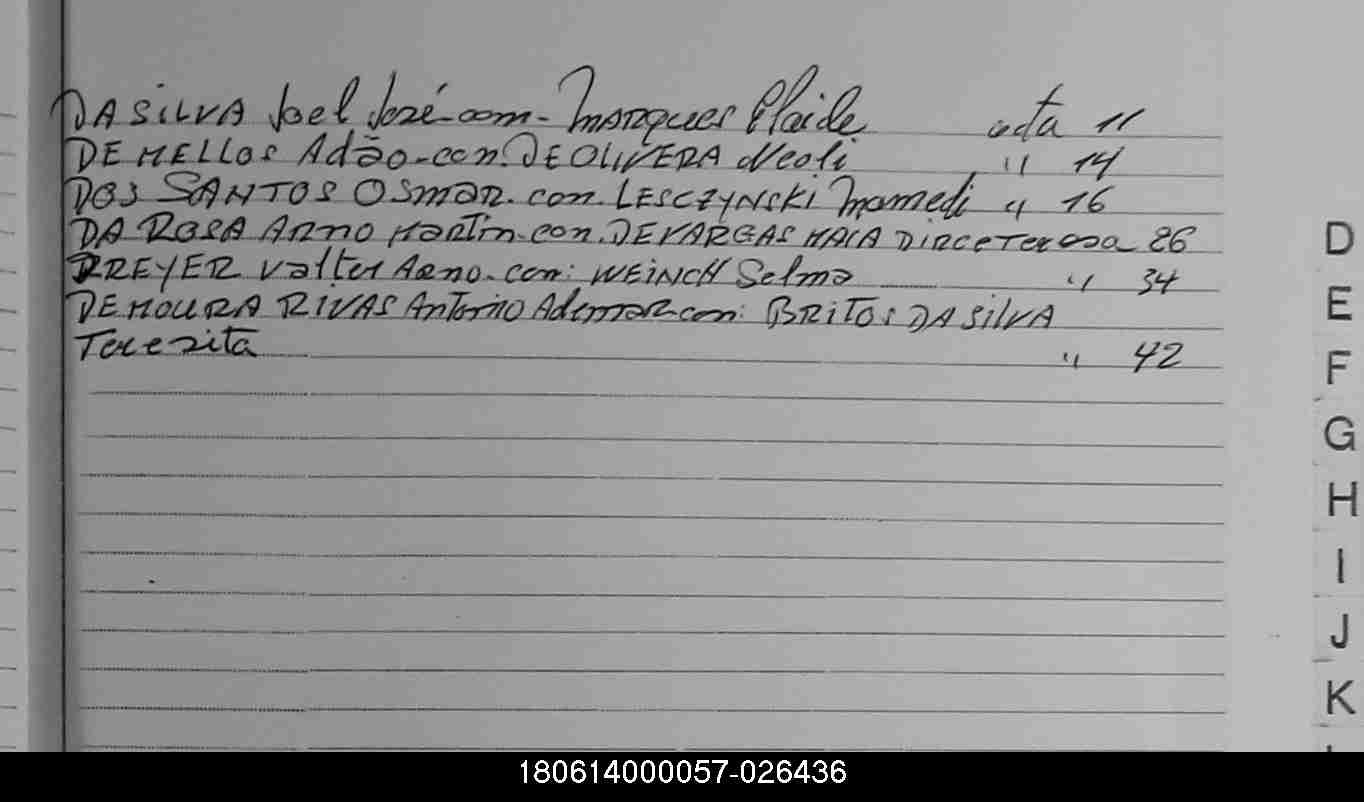 DA SILVA Joel José-com- Marques Elaide acta 11
DE MELLOS Adão-con. DE OLIVERA Neoli " 14
DOS SANTOS Osmar. con. LESCZYNSKI Mamedi " 16
DA ROSA Arno Martin-con. DEVARGAS MAIA Dirce Teresa 26
DREYER Valter Arno. con: WEINCH Selma " 34
DEMOURA RIVAS Antonio Ademar con: BRITOS DA SILVA
Teresita " 42
D
E
F
G
H
I
J
K
180614000057-026436